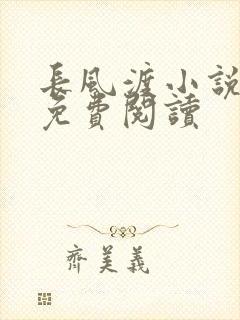 長風渡小說
免費閱讀
齊美義